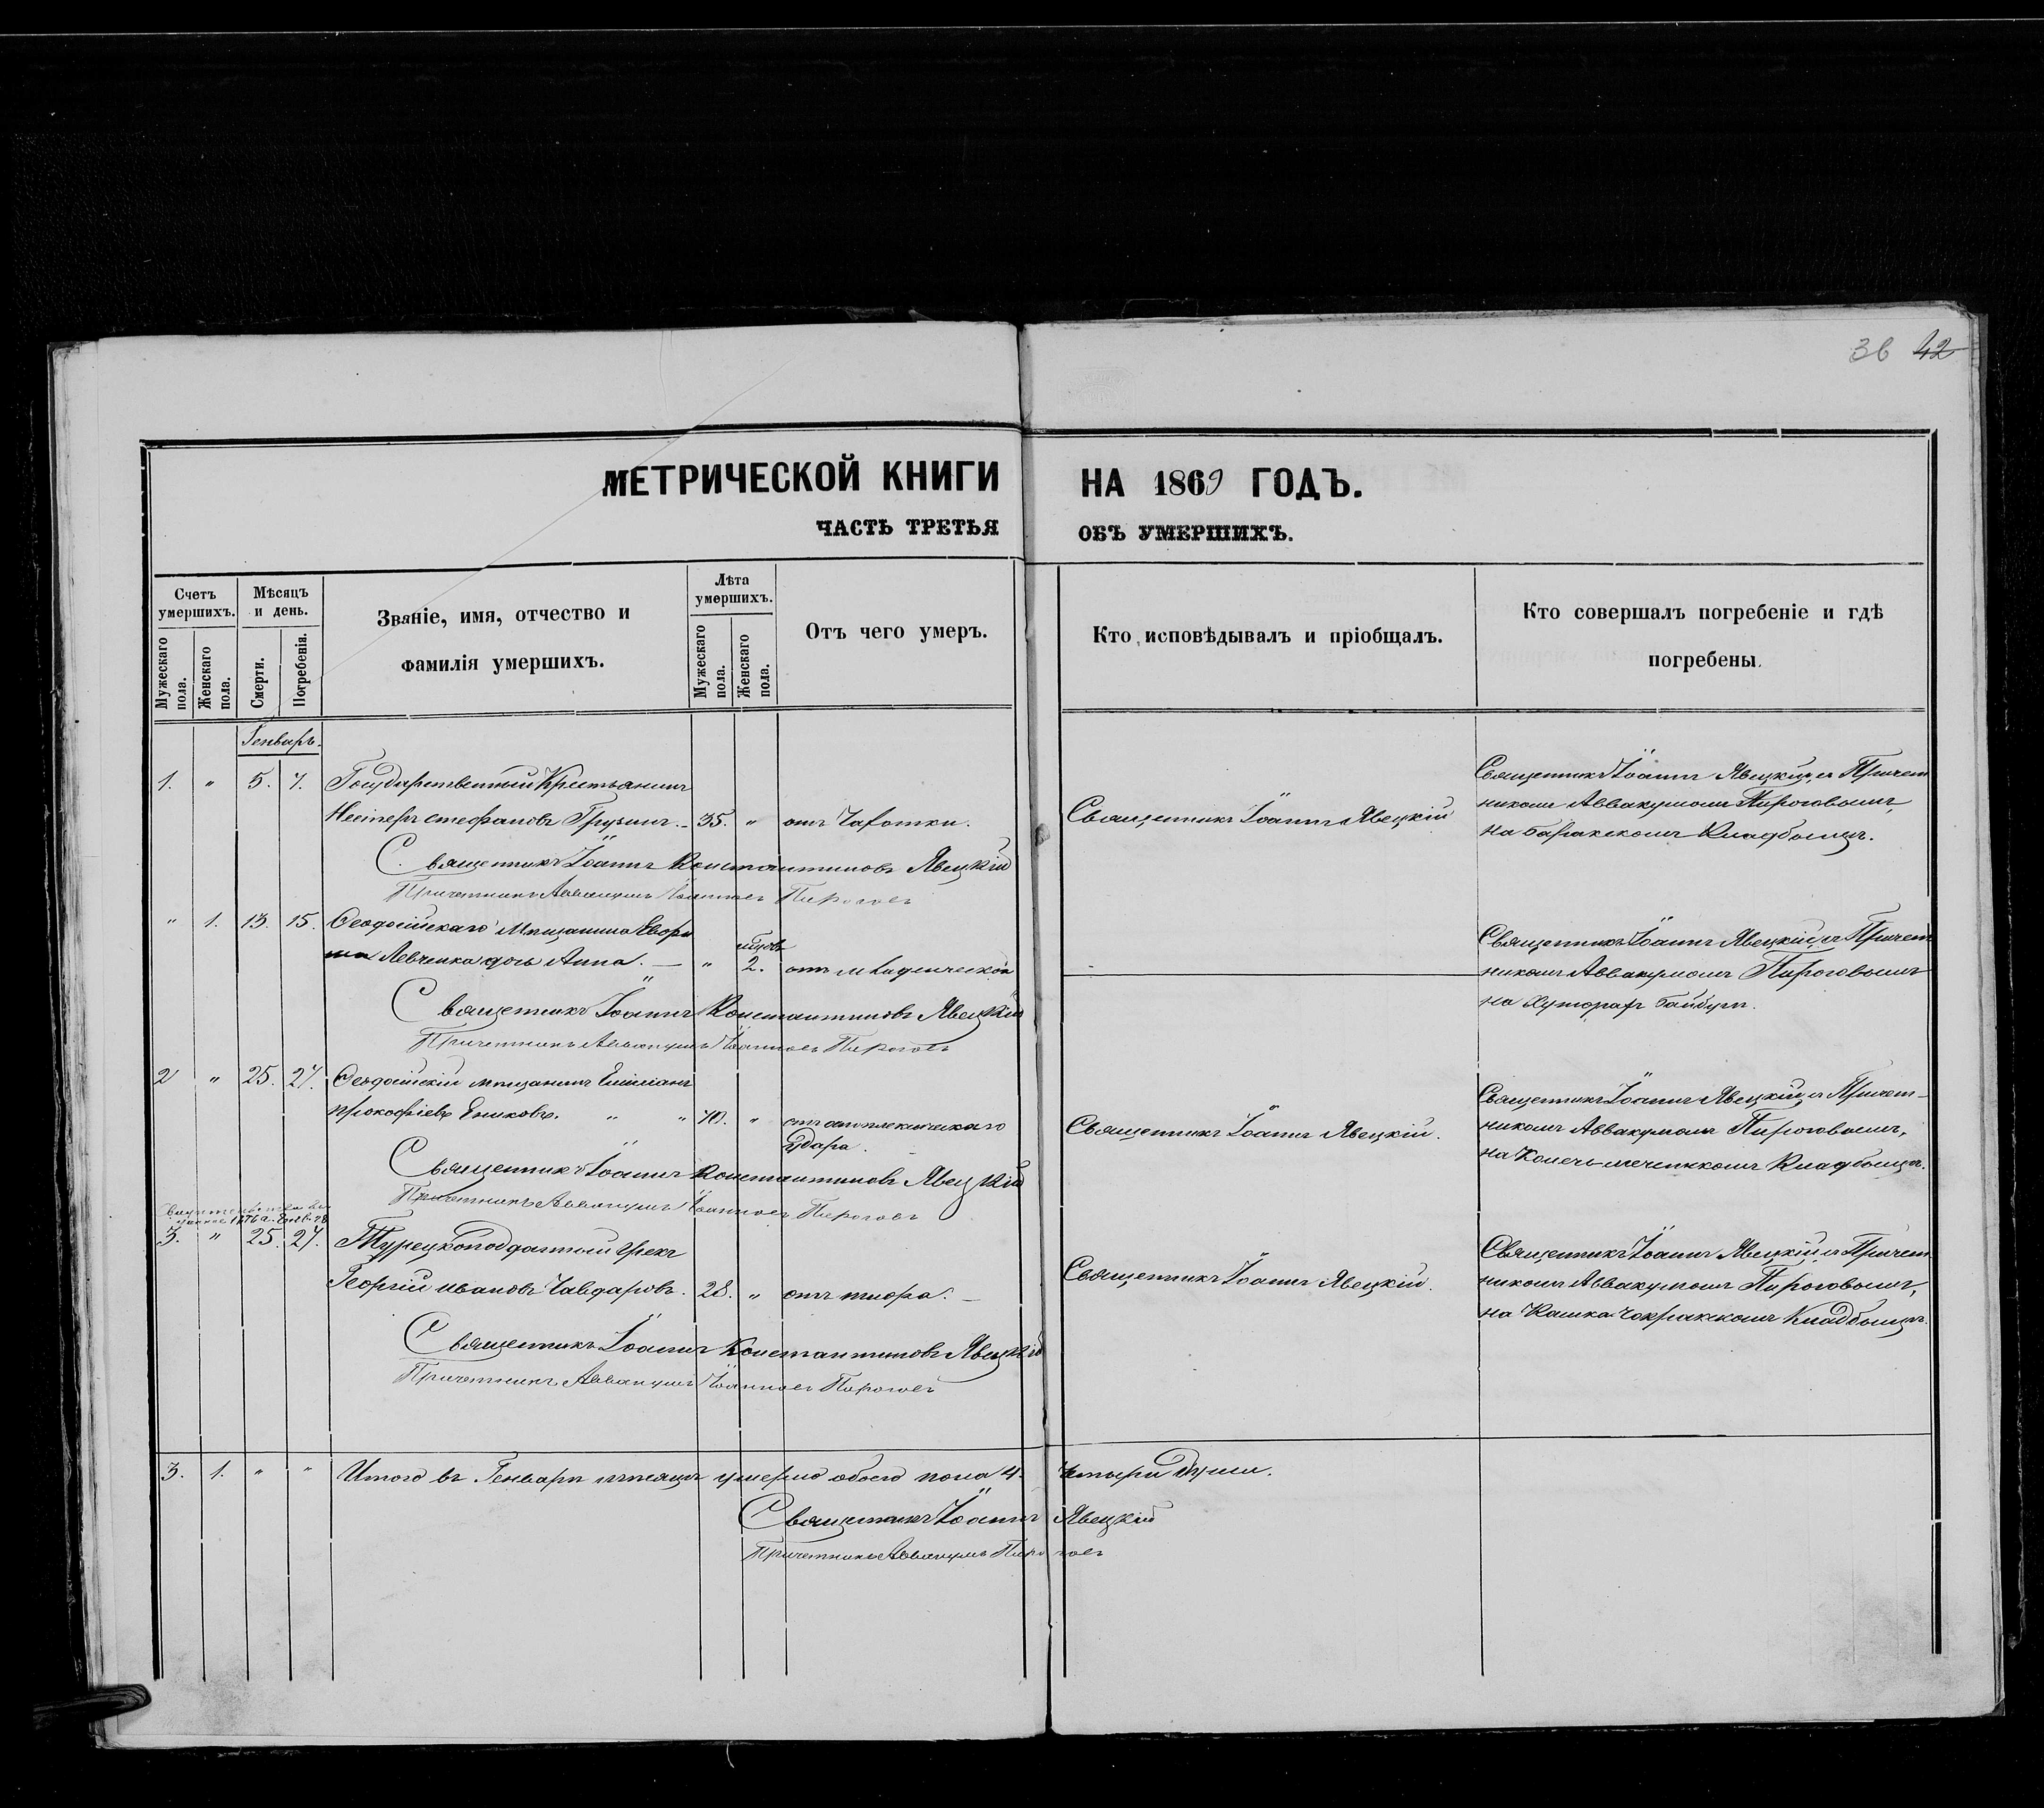 36 42
МЕТРИЧЕСКОЙ КНИГИ НА 1869 ГОДЪ.
ЧАСТЬ ТРЕТЬЯ ОБЪ УМЕРШИХЪ.
Счетъ умершихъ.
Мужескаго пола.
Женскаго пола.
Мѣсяцъ и день.
Смерти.
Погребенія.
Званіе, имя, отчество и
фамилія умершихъ.
Лѣта умершихъ.
Мужескаго пола.
Женскаго пола.
Отъ чего умеръ.
Кто исповѣдывалъ и пріобщалъ.
Кто совершалъ погребеніе и гдѣ
погребены.
Генварь.
1. " 5. 7. Государственный Крестьянинъ
Несторъ стефановъ Грузинъ. 35. " отъ Чахотки.
Священникъ Іоаннъ Явецкій
Священникъ Іоаннъ Явецкій, съ Причет
никомъ Аввакумомъ Пироговымъ,
на баракскомъ Кладбищѣ.
Священникъ Іоаннъ Константиновъ Явецкій
Причетникъ Аввакумъ Іоанновъ Пироговъ
" 1. 13. 15. Ѳеодосійскаго Мѣщанина
Левченка дочь Анна. — " 2. отъ младенческой
Священникъ Іоаннъ Явецкій, съ Причет
никомъ Аввакумомъ Пироговымъ
на Хуторахъ
Священникъ Іоаннъ Константиновъ Явецкій
Причетникъ Аввакумъ Іоанновъ Пироговъ
2 " 25. 27. Ѳеодосійскій мѣщанинъ
прокофіевъ Ениковъ. " " 70. " отъ апоплексическаго
Удара.
Священникъ Іоаннъ Явецкій.
Священникъ Іоаннъ Явецкій съ Причет-
никомъ Аввакумомъ Пироговымъ,
на Кладбищѣ.
Священникъ Іоаннъ Константиновъ Явецкій
Причетникъ Аввакумъ Іоанновъ Пироговъ
3. " 25. 27. Турецкоподданный грекъ
Георгій ивановъ Чавдаровъ. 28. " отъ тифа. —
Священникъ Іоаннъ Явецкій.
Священникъ Іоаннъ Явецкій съ Причет
никомъ Аввакумомъ Пироговымъ,
на Кашка Чокракскомъ Кладбищѣ.
Священникъ Іоаннъ Константиновъ Явецкій
Причетникъ Аввакумъ Іоанновъ Пироговъ
3. 1. " " Итого въ Генварѣ мѣсяцѣ умерло обоего пола 4. Четыри души.
Священникъ Іоаннъ Явецкій
Причетникъ Аввакумъ Пироговъ